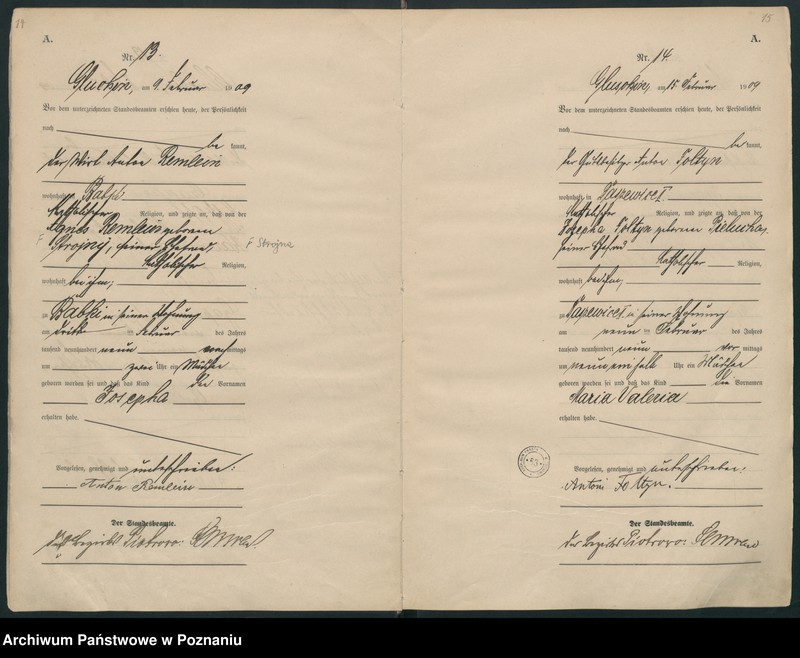 14
A.
Nr. 13.
Gluchow, am 9. Februar 1909
Vor dem unterzeichneten Standesbeamten erschien heute, der Persönlichkeit
nach
be kannt,
der Wirt Anton Remlein
wohnhaft
katholischer Religion, und zeigte an, daß von der
Agnes Remlein geborenen
Strojny, seiner Ehefrau,
F Strojna
katholischer Religion,
wohnhaft bei ihm,
zu Babki in seiner Wohnung
am dritten Februar des Jahres
tausend neunhundert neun vormittags
um zwei Uhr ein Mädchen
geboren worden sei und daß das Kind die Vornamen
Josepha
erhalten habe.
Vorgelesen, genehmigt und unterschrieben:
Anton Remlein
Der Standesbeamte.
Des Bezirks Piotrowo.
15
A.
Nr. 14.
Gluchow, am 15. Februar 1909
Vor dem unterzeichneten Standesbeamten erschien heute, der Persönlichkeit
nach
be kannt,
der Gutsbesitzer Anton Foltyn
wohnhaft in
katholischer Religion, und zeigte an, daß von der
Josepha Foltyn geborenen
seiner Ehefrau
katholischer Religion,
wohnhaft bei ihm,
zu in seiner Wohnung
am neun ten Februar des Jahres
tausend neunhundert neun vor mittags
um neun einhalb Uhr ein Mädchen
geboren worden sei und daß das Kind die Vornamen
Maria Valeria
erhalten habe.
Vorgelesen, genehmigt und unterschrieben:
Antoni Foltyn.
Der Standesbeamte.
Des Bezirks Piotrowo.
Archiwum Państwowe w Poznaniu